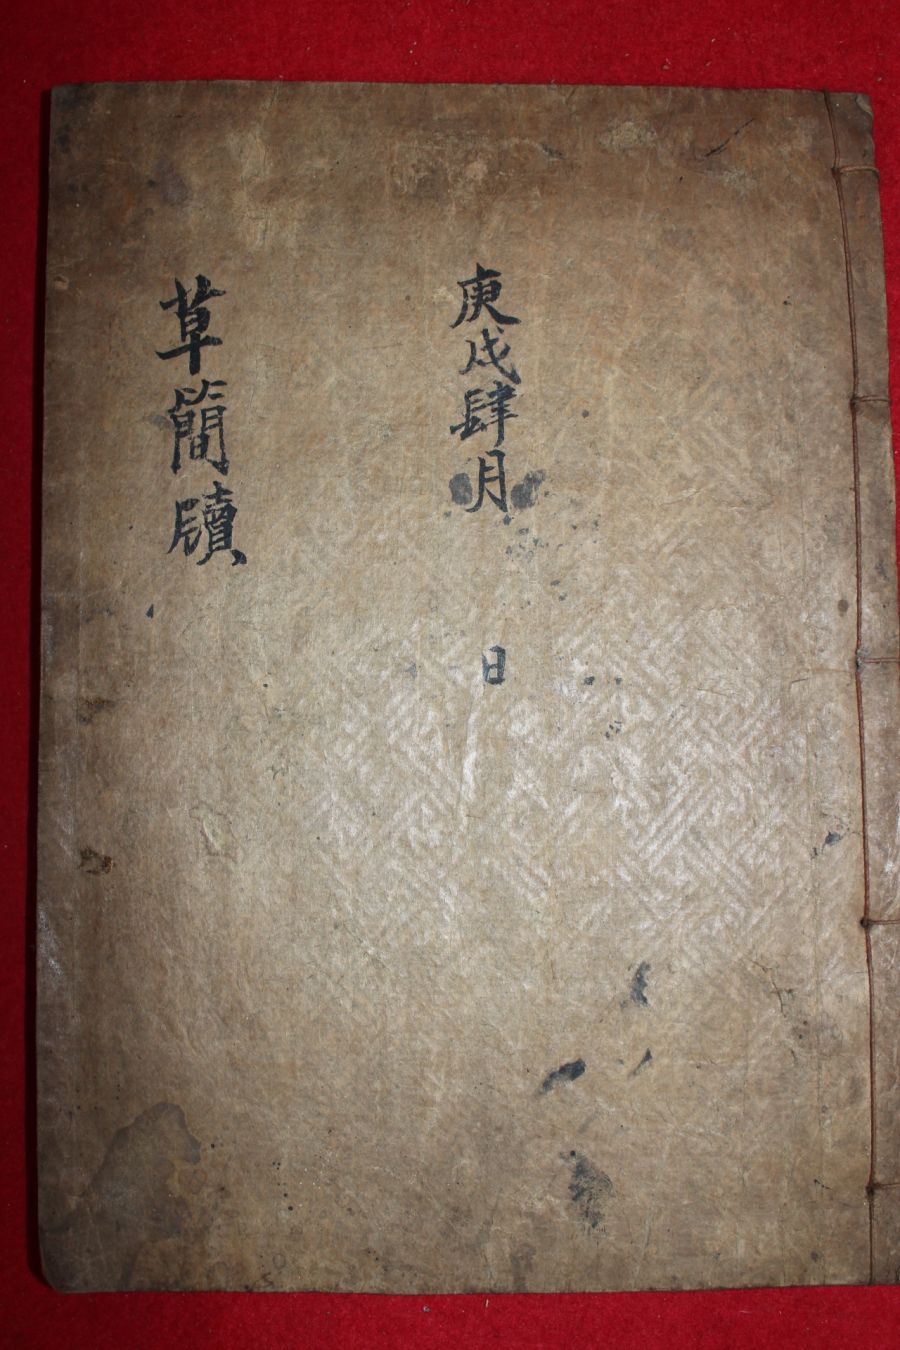 庚戌肆月 日
草簡牘